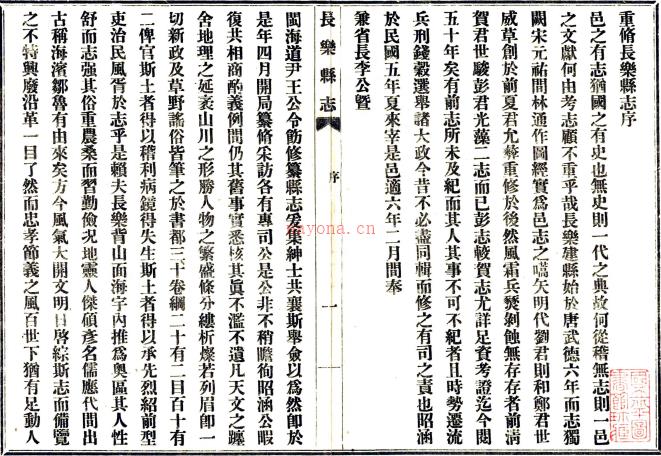 重脩長樂縣志序
邑之有志猶國之有史也無史則一代之典故何從稽無志則一邑
之文獻何由考志顧不重乎哉長樂建縣始於唐武德六年而志獨
闕宋元祐間林通作圖經實爲邑志之嚆矢明代劉君則和鄭君世
威草創於前夏君允彝重修於後然風霜兵燹剝蝕無存存者前淸
賀君世駿彭君光藻二志而已彭志較賀志尤詳足資考證迄今閱
五十年矣有前志所未及紀而其人其事不可不紀者且時勢遷流
兵刑錢穀選舉諸大政今昔不必盡同輯而修之有司之責也昭涵
於民國五年夏來宰是邑適六年二月間奉
兼省長李公曁
長樂縣志
序
一
閩海道尹王公令飭修纂縣志爰集紳士共襄斯舉僉以爲然卽於
是年四月開局纂脩采訪各有專司公是公非不稍瞻徇昭涵公暇
復共相商酌義例間仍其舊事實悉核其眞不濫不遺凡天文之躔
舍地理之延袤山川之形勝人物之繁盛條分縷析燦若列眉卽一
切新政及草野謠俗皆筆之於書都三十卷綱二十有二目百十有
二俾官斯土者得以稽利病鏡得失生斯土者得以承先烈紹前型
吏治民風胥於志乎是賴夫長樂背山面海宇內推爲奧區其人性
舒而志强其俗重農桑而習勤儉况地靈人傑碩彥名儒應代間出
古稱海濱鄒魯有由來矣方今風氣大開文明日啓綜斯志而備覽
之不特興廢沿革一目了然而忠孝節義之風百世下猶有足動人
nayona.cn